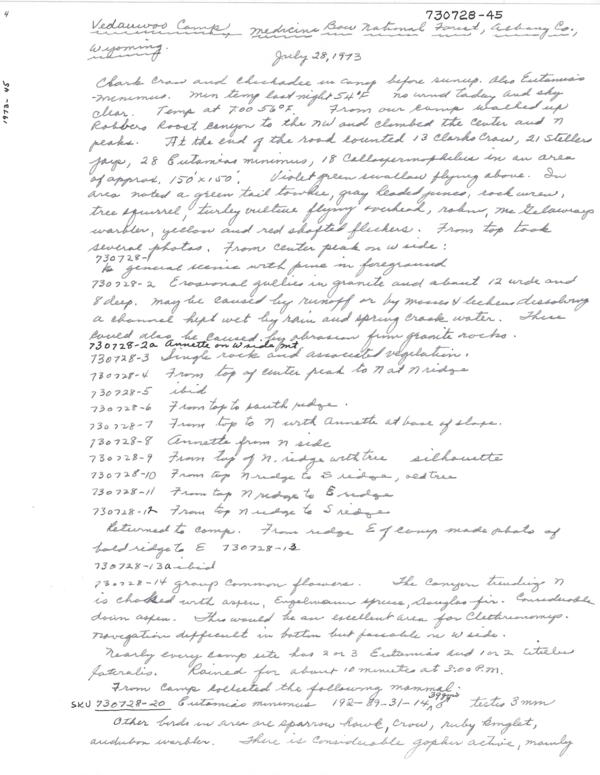 4
730728-45
1973-45
Vedauwoo Camp, Medicine Bow National Forest, Albany Co.,
Wyoming.
July 28, 1973
Clark Crow and Chickadee in camp before sunup. Also Eutamias
minimus. Min temp last night 54°F no wind today and sky
clear. Temp at 7:00 56°F. From our camp walked up
Robbers Roost Canyon to the NW and climbed the center and N
peaks. At the end of the road counted 13 Clarks Crow, 21 Stellers
Jays, 28 Eutamias minimus, 18 Callospermophilus in an area
of approx. 150' x 150'. Violet green swallow flying above. In
area noted a green tail towhee, gray headed junco, rock wren,
tree squirrel, turkey vulture flying overhead, robin, McGilawrays
warbler, yellow and red shafted flickers. From top took
several photos. From center peak on W side:
730728-1
general scenic with pine in foreground
730728-2 Erosional gullies in granite and about 12 wide and
8 deep. May be caused by runoff or by mosses & lichens dissolving
a channel kept wet by rain and spring water. These
could also be caused by abrasion from granite rocks.
730728-2a Annette on W side Mt.
730728-3 Single rock and associated vegetation.
730728-4 From top of center peak to N at N ridge
730728-5 ibid
730728-6 From top to south ridge.
730728-7 From top to N with Annette at base of slope.
730728-8 Annette from N side
730728-9 From top of N. ridge with tree silhouette
730728-10 From top N ridge to S ridge, old tree
730728-11 From top N ridge to E ridge
730728-12 From top N ridge to S ridge
Returned to camp. From ridge E of camp made photo of
bald ridge to E 730728-13
730728-13a ibid
730728-14 group common flowers. The canyon trending N
is choked with aspen, Engelmann spruce, Douglas fir. Considerable
down aspen. This would be an excellent area for Clethrionomys.
Navigation difficult in bottom but passable on W side.
Nearly every camp site has 2 or 3 Eutamias and 1 or 2 Citellus
lateralis. Rained for about 10 minutes at 3:00 P.M.
From camp collected the following mammal:
SKU 730728-20 Eutamias minimus 192-89-31-14, ♂ testis 3 mm
Other birds in area are sparrow hawk, crow, ruby kinglet,
audubon warbler. There is considerable gopher active, mainly